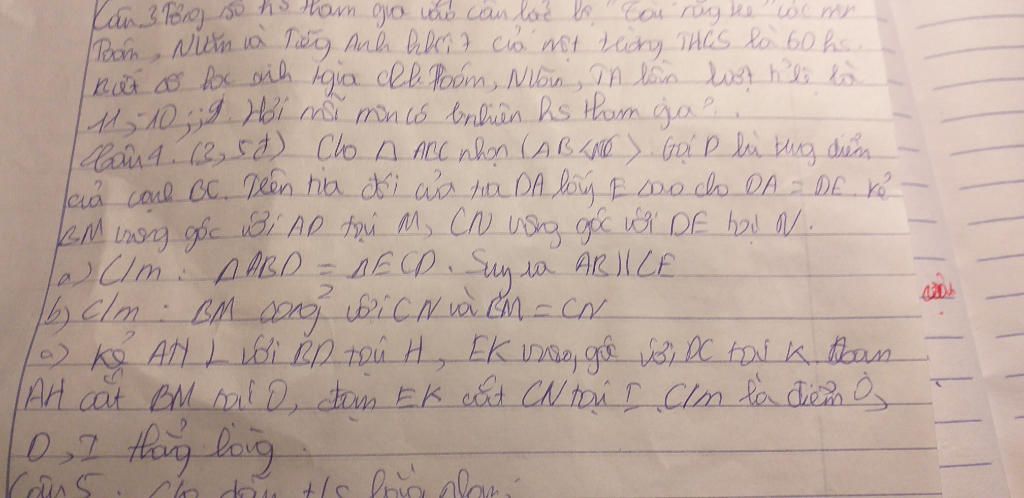 Câu 3. Tổng số hs tham gia vào câu lạc bộ các môn
Toán, N.Văn và Tiếng Anh khối 7 của một trường THCS là 60 hs.
Biết số học sinh tgia clb Toán, N.Văn, TA lần lượt tỉ lệ là
11; 10; 9. Hỏi mỗi môn có bnhiên hs tham gia?
Câu 4. (3,5đ) Cho Δ ABC nhọn (AB < AC). Gọi D là trung điểm
của cạnh BC. Trên tia đối của tia DA lấy E sao cho DA = DE. Kẻ
BM vuông góc với AD tại M, CN vuông góc với DE tại N.
a) C/m: ΔABD = ΔECD. Suy ra AB // CE
b) C/m: BM song² với CN và BM = CN
c) Kẻ AH ⊥ với BD tại H, EK vuông góc với DC tại K. Đoạn
AH cắt BM tại O, đoạn EK cắt CN tại I. C/m là điểm O,
D, I thẳng hàng
Câu 5. Cho